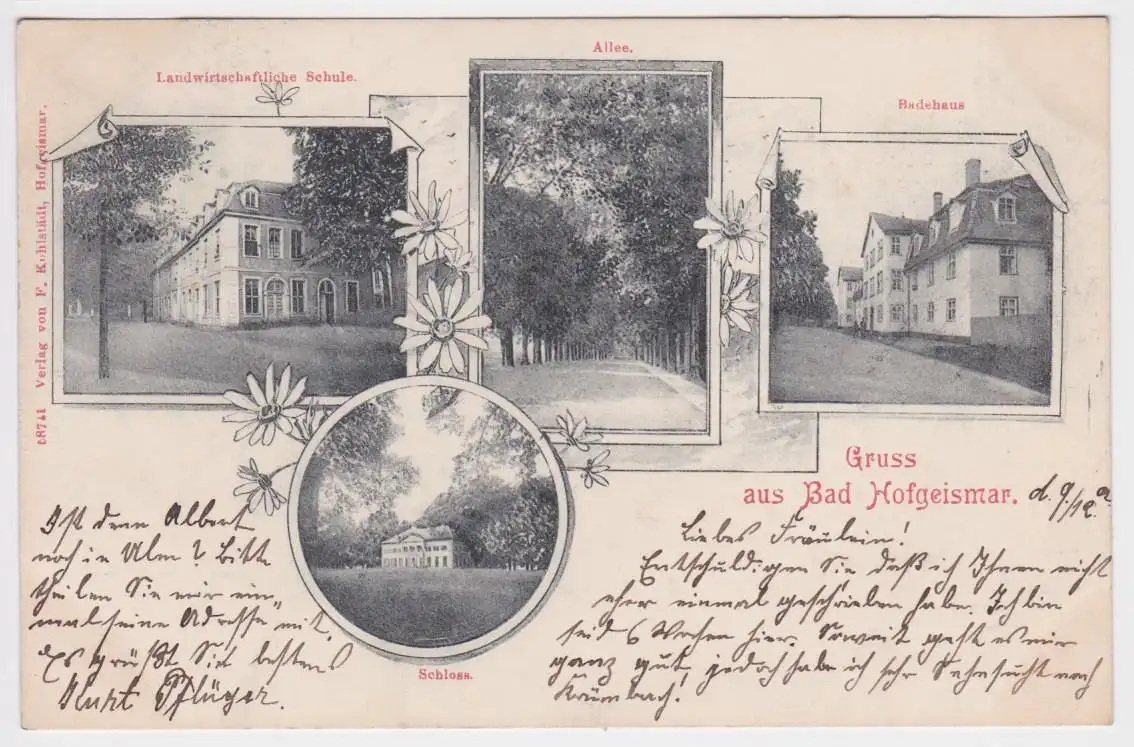 Allee.
Landwirtschaftliche Schule.
Badehaus
58741 Verlag von F. Kuhlstädt, Hofgeismar.
Gruss
aus Bad Hofgeismar.
d. 9/12.
Liebes Fräulein!
Entschuldigen Sie daß ich Ihnen nicht
eher einmal geschrieben habe. Ich bin
seid 6 Wochen hier. Soweit geht es mir
ganz gut, jedoch habe ich sehr Sehnsucht nach
Krumbach!
Ist denn Albert
noch in Ulm? Bitte
theilen Sie mir ein-
mal seine Adresse mit.
Es grüßt Sie bestens
Kurt Pflüger.
Schloss.